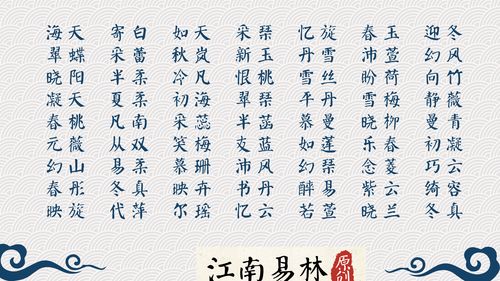 海天 寄白 如天 采琴 忆旋 春玉 迎冬
翠蝶 采蕾 秋岚 新玉 丹雪 沛萱 幻风
晓阳 半柔 冷凡 恨桃 雪丝 盼荷 向竹
凝天 夏柔 初海 翠琴 半丹 雪梅 静薇
春桃 凡南 采蕊 半菡 慕曼 晓柳 曼青
元薇 从双 笑梅 友蓝 如莲 乐春 初凝
幻山 易柔 慕珊 沛风 幻 念菱 巧云
春彤 冬真 映卉 书丹 醉易 紫云 绮容
映旋 代萍 尔瑶 忆云 若萱 晓兰 冬真
江南易林 原创